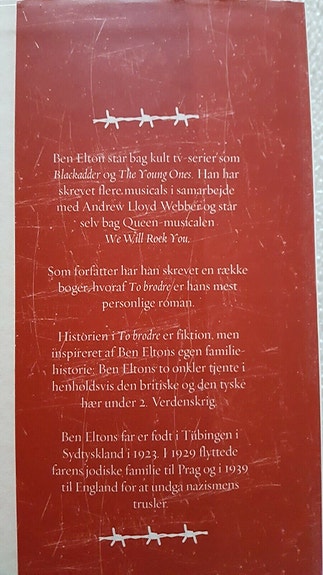 Ben Elton står bag kult tv-serier som
Blackadder og The Young Ones. Han har
skrevet flere musicals i samarbejde
med Andrew Lloyd Webber og står
selv bag Queen-musicalen
We Will Rock You.
Som forfatter har han skrevet en række
bøger, hvoraf To brødre er hans mest
personlige roman.
Historien i To brødre er fiktion, men
inspireret af Ben Eltons egen familie-
historie; Ben Eltons to onkler tjente i
henholdsvis den britiske og den tyske
hær under 2. Verdenskrig.
Ben Eltons far er født i Tübingen i
Sydtyskland i 1923. I 1929 flyttede
farens jødiske familie til Prag og i 1939
til England for at undgå nazismens
trusler.